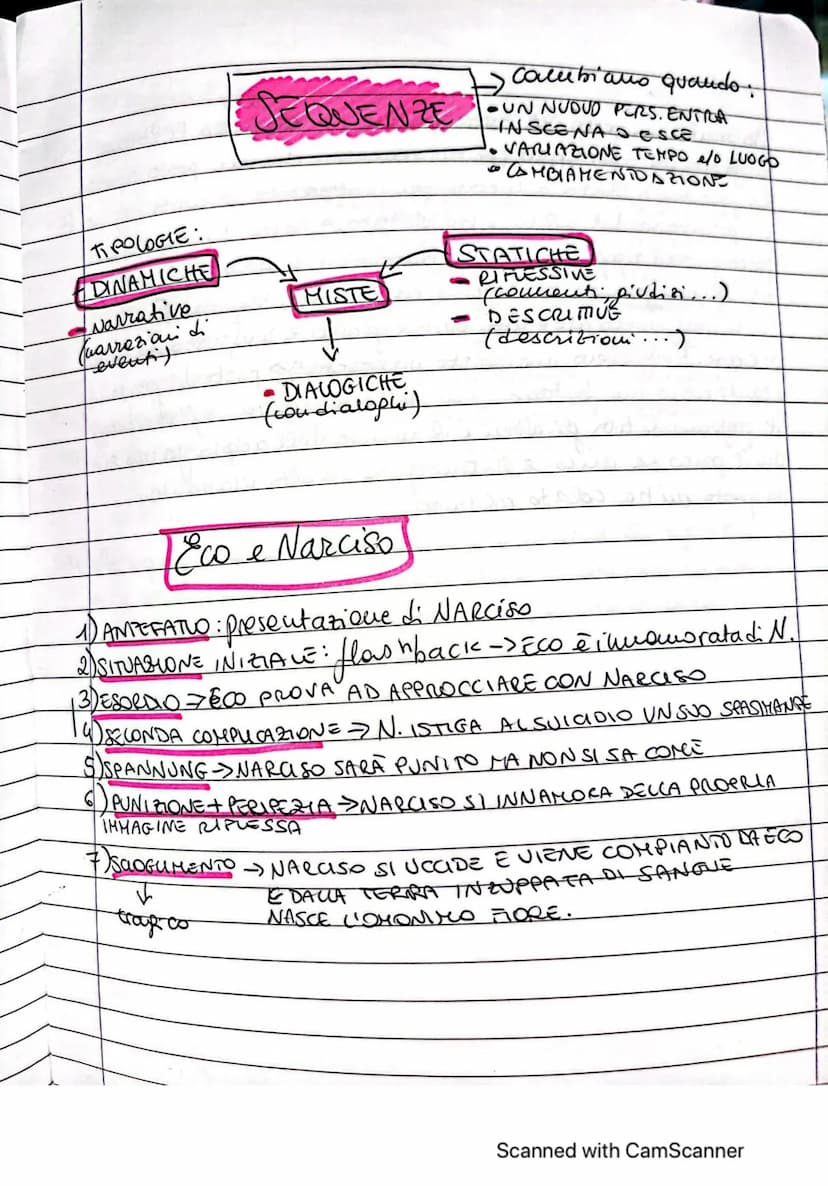 SEQUENZE
→ cambiano quando:
• UN NUOVO PERS. ENTRA
IN SCENA O ESCE
• VARIAZIONE TEMPO e/o LUOGO
• CAMBIAMENTO AZIONE
TIPOLOGIE:
DINAMICHE
- Narrative
(narrazioni di
eventi)
MISTE
- DIALOGICHE
(con dialoghi)
STATICHE
- RIFLESSIVE
(commenti, giudizi...)
- DESCRITTIVE
(descrizioni ...)
Eco e Narciso
1) ANTEFATTO: presentazione di NARCISO
2) SITUAZIONE INIZIALE: flashback -> ECO è innamorata di N.
3) ESORDIO → ECO PROVA AD APPROCCIARE CON NARCISO
4) SECONDA COMPLICAZIONE → N. ISTIGA AL SUICIDIO UN SUO SPASIMANTE
5) SPANNUNG → NARCISO SARÀ PUNITO MA NON SI SA COME
6) PUNIZIONE + PERIPEZIA → NARCISO SI INNAMORA DELLA PROPRIA
IMMAGINE RIFLESSA
7) SCIOGLIMENTO → NARCISO SI UCCIDE E VIENE COMPIANTO DA ECO
E DALLA TERRA INZUPPATA DI SANGUE
NASCE L'OMONIMO FIORE.
↓
tragico
Scanned with CamScanner